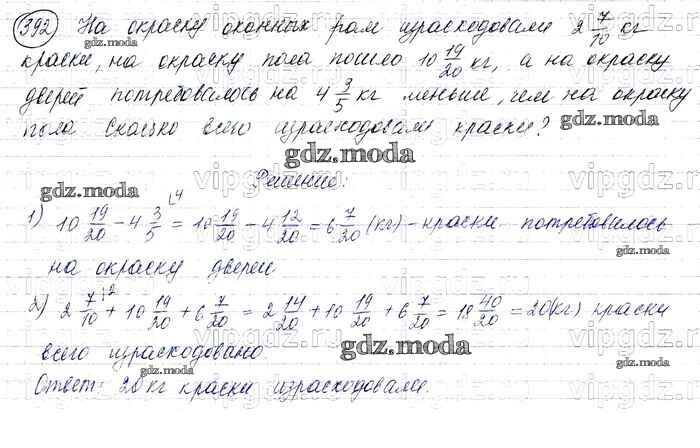 392 На окраску оконных рам израсходовали 2 7/10 кг
краски, на окраску пола пошло 10 19/20 кг, а на окраску
дверей потребовалось на 4 3/5 кг меньше, чем на окраску
пола Сколько всего израсходовали краски?
Решение:
1) 10 19/20 − 4 3/5 \4 = 10 19/20 − 4 12/20 = 6 7/20 (кг) - краски потребовалось
на окраску дверей
2) 2 7/10 \2 + 10 19/20 + 6 7/20 = 2 14/20 + 10 19/20 + 6 7/20 = 18 40/20 = 20(кг) краски
всего израсходовано
Ответ: 20 кг краски израсходовали.
gdz.moda
gdz.moda
gdz.moda
gdz.moda
gdz.moda
gdz.moda
gdz.moda
gdz.moda
gdz.moda
vipgdz.ru